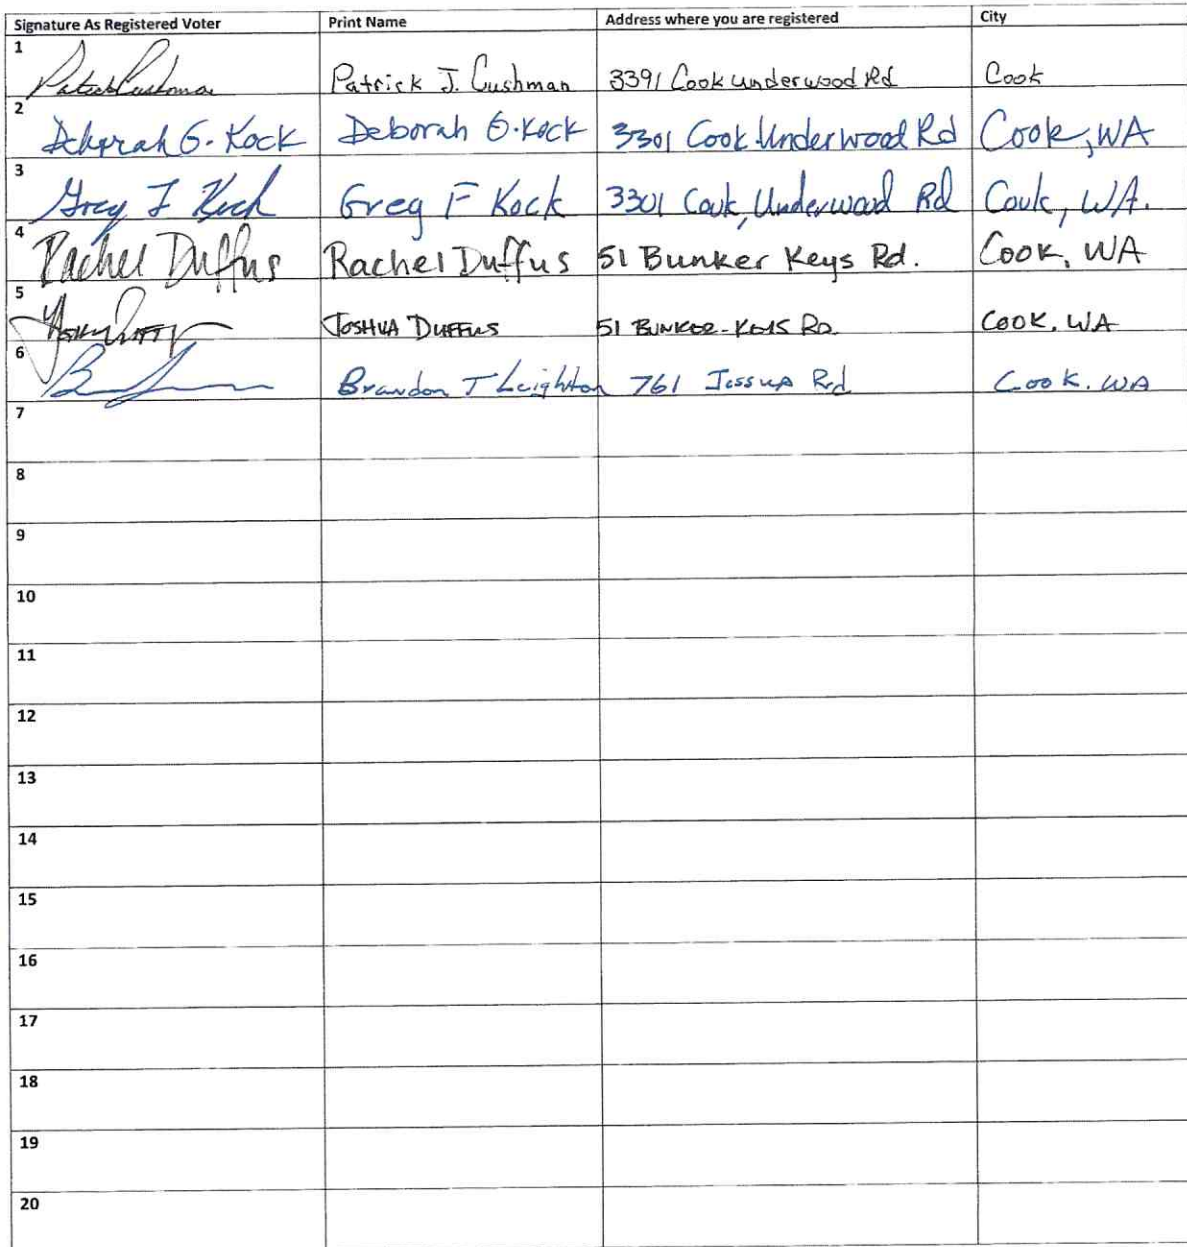 Signature As Registered Voter Print Name Address where you are registered City
1 Patrick J. Cushman 3391 Cook Underwood Rd Cook
2 Deborah G. Kock Deborah G. Kock 3301 Cook Underwood Rd Cook, WA
3 Greg F Kock Greg F Kock 3301 Cook, Underwood Rd Cook, WA.
4 Rachel Duffus Rachel Duffus 51 Bunker Keys Rd. Cook, WA
5 JOSHUA DUFFUS 51 BUNKER-KEYS RD. COOK, WA
6 Brandon T Leighton 761 Jessup Rd Cook. WA
7
8
9
10
11
12
13
14
15
16
17
18
19
20